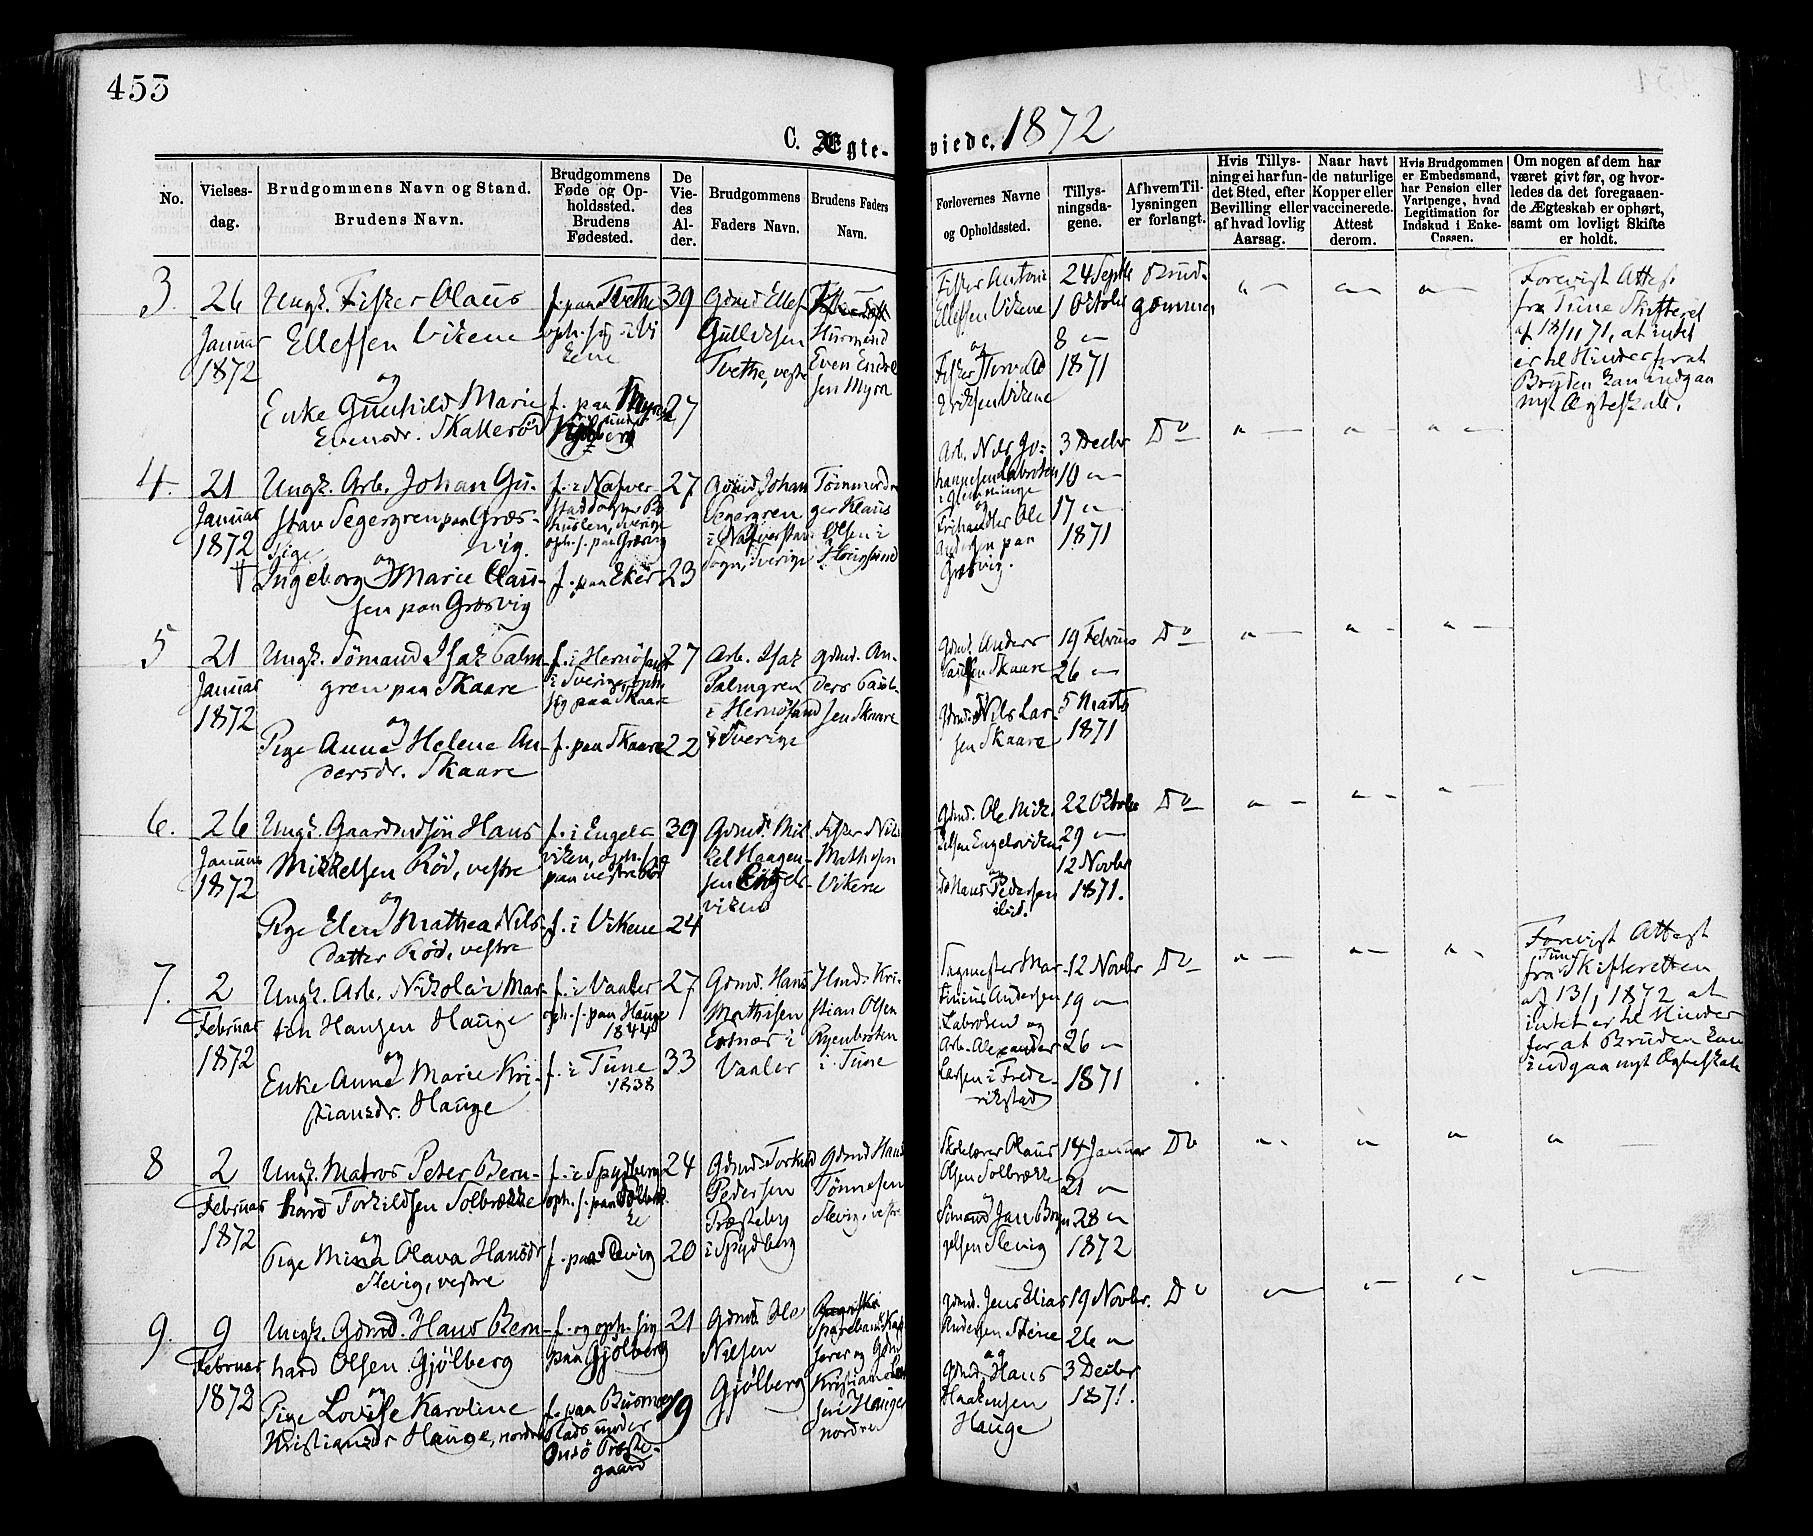 453
C. Ægte-
viede, 1872
No.
Vielses-
dag.
Brudgommens Navn og Stand.
Brudens Navn.
Brudgommens
Føde og Op-
holdssted.
Brudens
Fødested.
De
Vie-
des
Al-
der.
Brudgommens
Faders Navn.
Brudens Faders
Navn.
Forlovernes Navne
og Opholdssted.
Tillys-
ningsda-
gene.
Af hvem Til-
lysningen
er forlangt.
Hvis Tillys-
ning ei har fun-
det Sted, efter
Bevilling eller
af hvad lovlig
Aarsag.
Naar havt
de naturlige
Kopper eller
vaccinerede.
Attest
derom.
Hvis Brudgommen
er Embedsmand,
har Pension eller
Vartpenge, hvad
Legitimation for
Indskud i Enke-
Cassen.
Om nogen af dem har
været givt før, og hvor-
ledes da det foregaaen-
de Ægteskab er ophørt,
samt om lovligt Skifte
er holdt.
3.
26
Januar
1872
Ungk. Fisker Olaus
Ellefsen Vikene
og
Enke Gunhild Marie
Evensdr. Skallerød
f. paa Tvethe
oph. sig i Vi
kene
f. paa Myra
under
39
27
Gdmd Ellef
Gullicksen
Tvethe, vestre
Husmand
Even Endre
sen Myra
Fisker Antoni
Ellefsen Vikene
og
Fisker Torvald
Eriksen Vikene
24 Septbr
1 October
8 "
1871
Brud-
gommen
" —
" —
" —
Forevist Attest
fra Tune Skifteret
af 18/11 71, at intet
er til Hinder for at
Bruden kan indgaa
nyt Ægteskab.
4.
21
Januar
1872
Ungk. Arb. Johan Gu-
stav Segergren paa Græs-
vig.
Pige og
† Ingeborg Marie Clau-
sen paa Græsvig
f. i Nafver
stad Sogn Bo
huslen, Sverige
oph. s. paa Græsvig
f. paa Eker
27
23
Gdmd Johan
Segergren
i Nafverstad
Sogn, Sverige
Tømmerdr
ger Klaus
Olsen i
Arb. Nils Jo-
hannesen Labroten
i Glemminge
og
Frihandler Ole
Andersen paa
Græsvig.
3 Decbr
10 "
17 "
1871
Do
" —
" —
" —
5
21
Januar
1872
Ungk. Sømand Isak Palm-
gren paa Skaare
og
Pige Anne Helene An-
dersdr. Skaare
f. i Hernösand
i Sverige, oph.
sig paa Skaare
f. paa Skaare
27
22
Arb. Isak
Palmgren
i Hernösand
i Sverige
Gdmd. An-
ders Paul-
sen Skaare
Gdmd. Anders
Paulsen Skaare
Gdmd. Nils Lar-
sen Skaare
19 Februar
26 "
5 Marts
1871
Do
" —
" —
" —
6.
26
Januar
1872
Ungk. Gaardmdsøn Hans
Mikkelsen Rød, vestre
og
Pige Elen Mathea Nils-
datter Rød, vestre
f. i Engels-
viken, oph. sig
paa vestre Rød
f. i Vikene
39
24
Gdmd. Mik
kel Haagen-
sen Engels-
viken
Fisker Nils
Mathesen
Vikene
Gdmd. Ole Mik
kelsen Engelsviken
og
Do Hans Pedersen
ibid.
22 October
29 "
12 Novbr
1871.
Do
" —
" —
" —
7.
2
Februar
1872
Ungk. Arb. Nikolai Mar-
tin Hansen Hauge
og
Enke Anne Marie Kri-
stiansdr. Hauge
f. i Vaaler
oph. s. paa Hauge
1844
f. i Tune
1838
27
33
Gdmd. Hans
Mathisen
Estnæs i
Vaaler
Hmd. Kri-
stian Olsen
Ryenbroten
i Tune
Tagmester Mar-
tinius Andersen
Labroten og
Arb. Alexander
Larsen i Frede-
rikstad
12 Novbr
19 "
26 "
1871
Do
" —
" —
" —
Forevist Attest
fra Tune Skifteretten
af 13/1 1872 at
intet er til Hinder
for at Bruden kan
indgaa nyt Ægteskab
8
2
Februar
1872
Ungk. Matros Peter Bern-
hard Torkildsen Solbrække
og
Pige Mina Olava Hansdr
Slevig, vestre
f. i Spydberg
oph. s. paa Solbræk
ke
f. paa Slevig
24
20
Gdmd. Torkild
Pedersen
Præsteby
i Spydberg
Gdmd Hans
Tønnesen
Slevig, vestre
Skolelærer Olaus
Olsen Solbrække
og
Sømand Jan Bryn
gelsen Slevig
14 Januar
21 "
28 "
1872
Do
" —
"
"
"
9.
9
Februar
1872
Ungk. Gdmd. Hans Bern-
hard Olsen Gjølberg
og
Pige Lovise Karoline
Kristiansdr Hauge, nordre
f. og oph. sig
paa Gjølberg
f. paa
Plads under
Onsø Præste-
gaard
21
19
Gdmd. Ole
Nilsen
Gjølberg
Sparebankkas
serer og Gdmd
Kristian Lar
sen Hauge
nordre
Gdmd. Jens Elias
Andersen Stene
og
Gdmd. Hans
Haakensen
Hauge
19 Novbr.
26 "
3 Decbr
1871.
Do
" —
" —
" —
" —